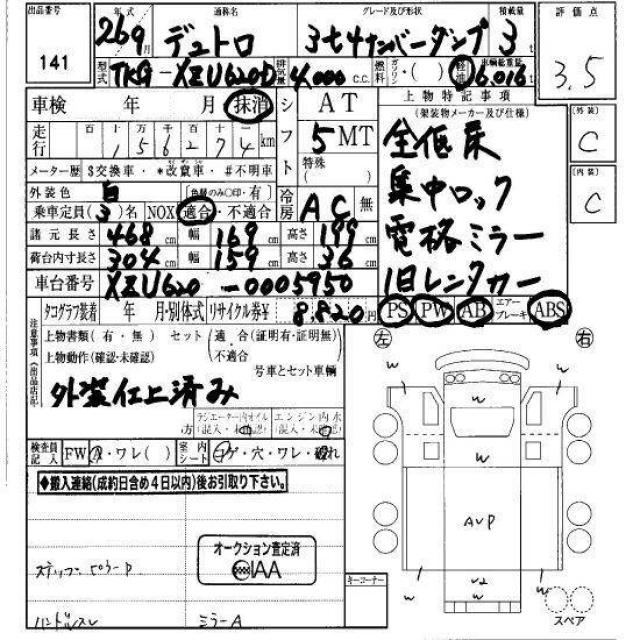 出品番号
141
年式
26 9月
通称名
デュトロ
グレード及び形状
3t4ナンバーダンプ
積載量
3 t
評価点
3.5
型式
TKG-XZU620D
排気量
4,000 c.c.
燃料
ガソリン・( )軽油
車輌総重量
6,016 t
車検 年 月 抹消
走行
百 十 万 千 百 十
1 5 6 2 7 4 km
メーター歴 $交換車・*改竄車・#不明車
シフト
AT
5 MT
特殊
( )
上物特記事項
(架装物メーカー及び仕様)
全低床
集中ロック
電格ミラー
1日レンタカー
(外装)
C
(内装)
C
外装色 白 (色替のみ○印・有)
乗車定員(3)名 NOX 適合・不適合
冷房 AC 無
諸元長さ 468 cm 幅 169 cm 高さ 199 cm
荷台内寸長さ 304 cm 幅 159 cm 高さ 36 cm
車台番号 XZU620-0005950
タコグラフ装着 年 月・別体式 リサイクル券¥ 8,820 円
PS PW AB エアーブレーキ ABS
注意事項(出品店記入)
上物書類(有・無) セット(適 合(証明有・証明無)
上物動作(確認・未確認) 不適合
号車とセット車輌
外装仕上済み
ラジエーター内オイル エンジン内水
方(混入・未確認) (混入・未確認)
検査員記入 FW ・ワレ( ) 室内シート コゲ・穴・ワレ・破れ
◆搬入連絡(成約日含め4日以内)後お引取り下さい。
オークション査定済
IAA
ハンドルスレ
ミラーA
キーコーナー
左
右
w
w
w
w
w
w
AVP
v2
w
w
w
スペア